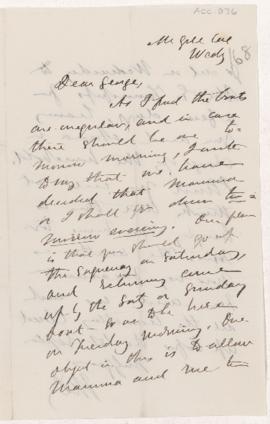 ACC. 036
McGill Coll
Wedy
/68
Dear George,
As I find the boats
are irregular, and in case
there should be one to-
morrow morning, I write
to say that we have
decided that Mamma
or I shall go down to-
morrow evening. Our plan
is that you should go up
the Saguenay on Saturday,
and returning come
up by the Saty or Sunday
boat so as to be here
on Tuesday morning. One
object in this is to allow
Mamma and me to